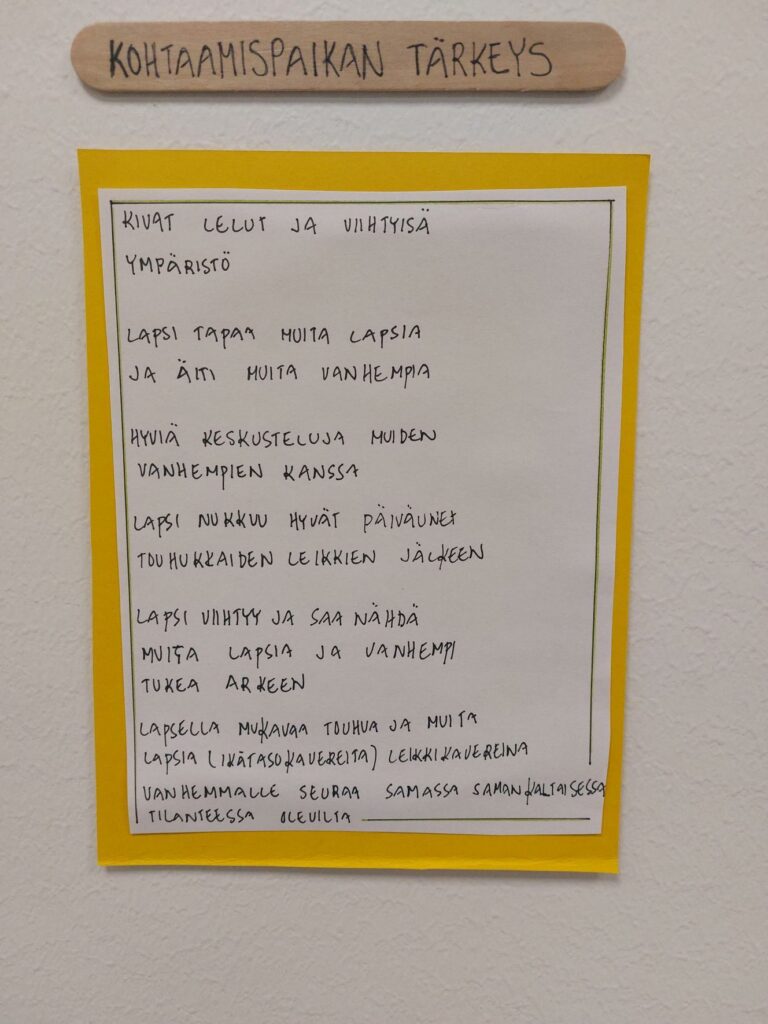 KOHTAAMISPAIKAN TÄRKEYS
KIVAT LELUT JA VIIHTYISÄ
YMPÄRISTÖ
LAPSI TAPAA MUITA LAPSIA
JA ÄITI MUITA VANHEMPIA
HYVIÄ KESKUSTELUJA MUIDEN
VANHEMPIEN KANSSA
LAPSI NUKKUU HYVÄT PÄIVÄUNET
TOUHUKKAIDEN LEIKKIEN JÄLKEEN
LAPSI VIIHTYY JA SAA NÄHDÄ
MUITA LAPSIA JA VANHEMPI
TUKEA ARKEEN
LAPSELLA MUKAVAA TOUHUA JA MUITA
LAPSIA (IKÄTASOKAVEREITA) LEIKKIKAVEREINA
VANHEMMALLE SEURAA SAMASSA SAMANKALTAISESSA
TILANTEESSA OLEVILTA